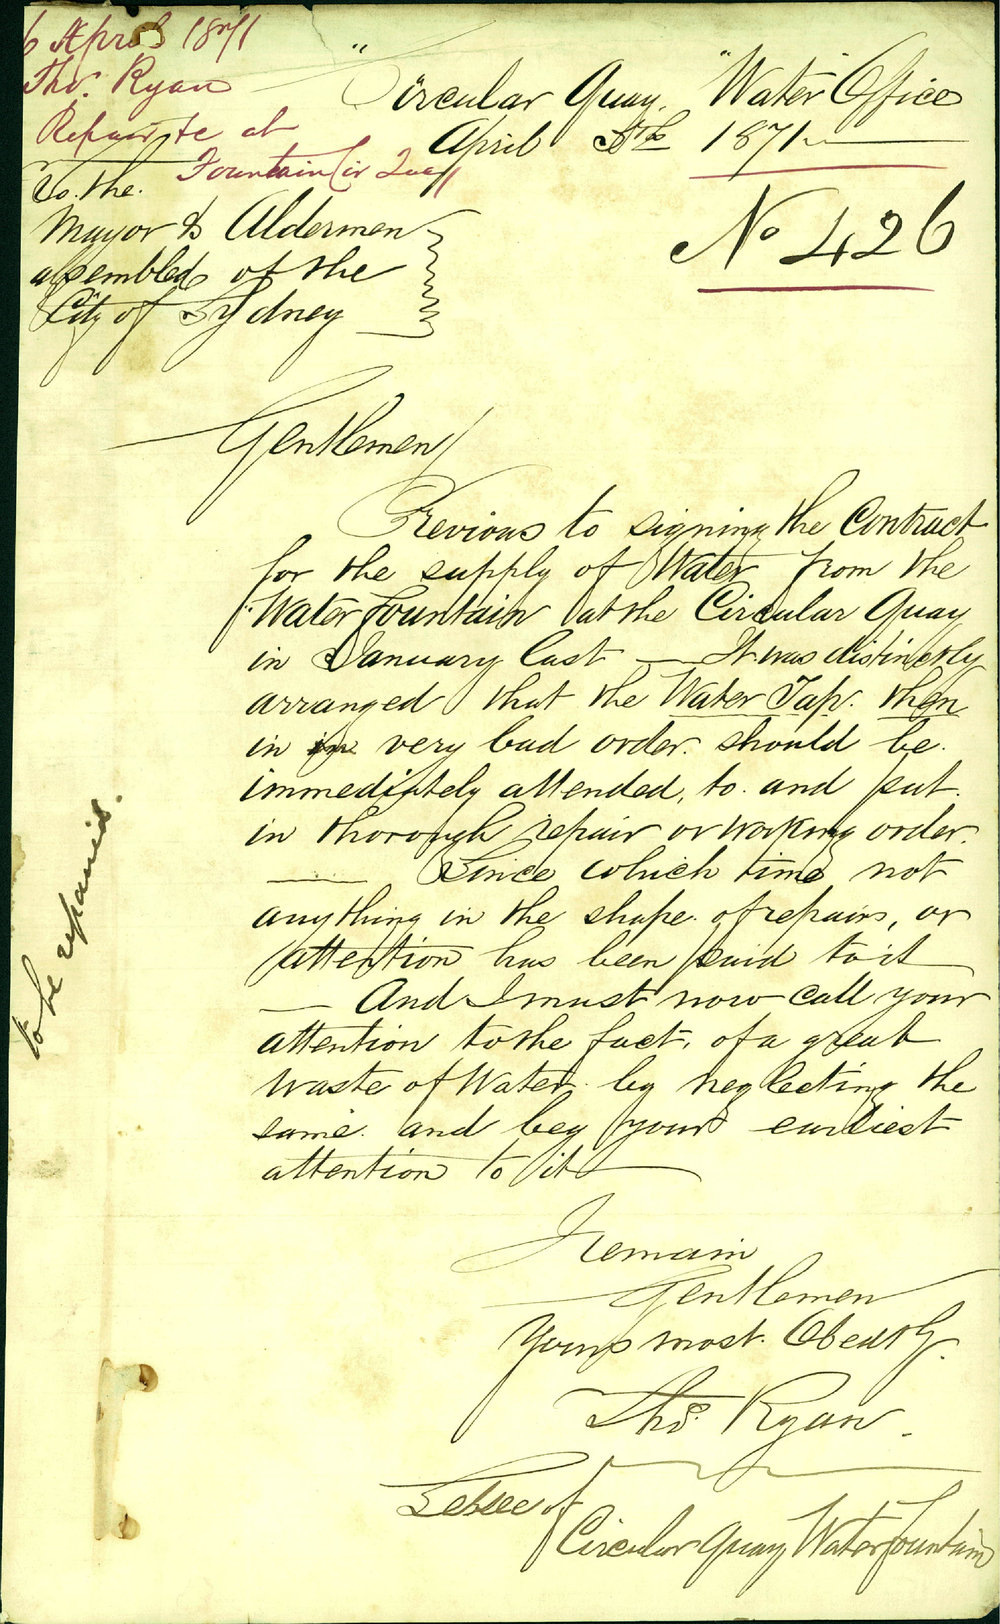 6 April 1871
Thos. Ryan
Repair &c at
Fountain Cir Quay
"Circular Quay. "Water Office"
April 5th 1871
No 426
To. the.
Mayor & Aldermen
assembled of the
City of Sydney
Gentlemen/
Previous to signing the Contract
for the supply of Water from the
"Water Fountain at the Circular Quay
in January last — It was distinctly
arranged that the Water Tap. then
in in very bad order. should be.
immediately attended, to. and put.
in thorough repair or working order.
— Since which time not
anything in the shape. of repairs, or
attention has been paid to it
— And I must now call your
attention to the fact, of a great
waste of Water. by neglecting the
same. and beg your earliest
attention to it
I remain
Gentlemen
Yours most. Obedtly.
Thos. Ryan.
Lessee of
Circular Quay Water Fountain
to be repaired.